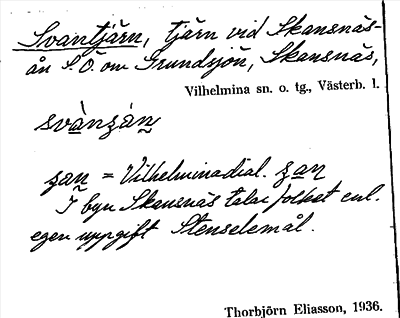 Svantjärn, tjärn vid Skansnäs-
ån S.Ö. om Grundsjön, Skansnäs,
Vilhelmina sn. o. tg., Västerb. l.
svànʒán
ʒan = Vilhelminadial. ʒan
I byn Skansnäs talar folket enl.
egen uppgift Stenselemål.
Thorbjörn Eliasson, 1936.